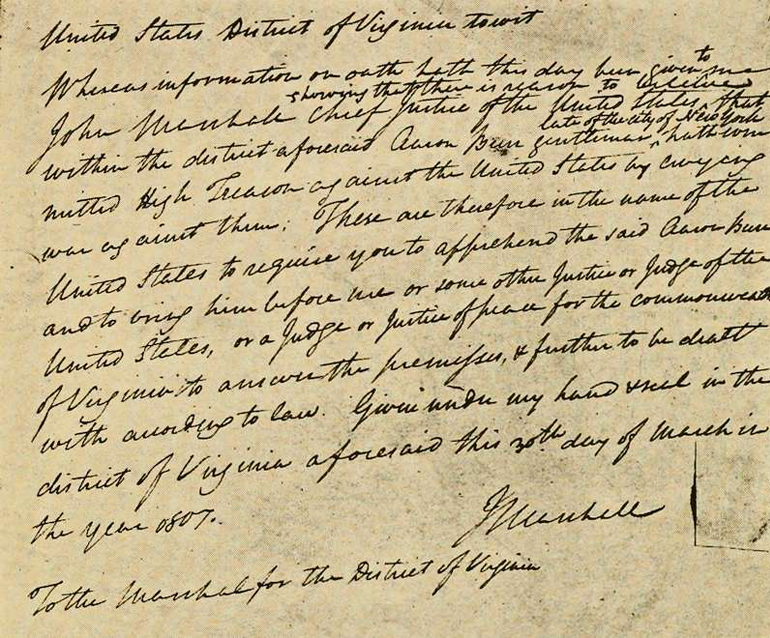 United States District of Virginia towit
Whereas information on oath hath this day been given to me
John Marshall Chief Justice of the United States, that
showing that there is reason to
within the district aforesaid Aaron Burr gentleman hath com
late of the city of New York
mitted High Treason against the United States by
war against them: These are therefore in the name of the
United States to require you to apprehend the said Aaron Burr
and to bring him before me or some other Justice or Judge of the
United States, or a Judge or Justice of peace for the commonwealth
of Virginia to answer the premisses, & further to be dealt
with according to law. Given under my hand & seal in the
district of Virginia aforesaid this 30th day of March in
the year 1807.
J Marshall
To the Marshal for the District of Virginia